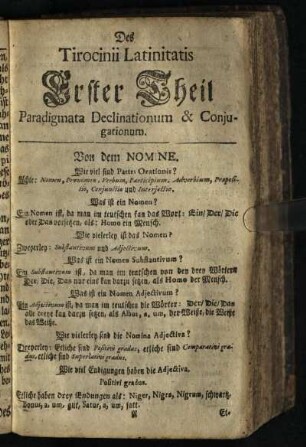 Des
Tirocinii Latinitatis
Erster Theil
Paradigmata Declinationum & Conju-
gationum.
Von dem NOMINE.
Wie viel sind Partes Orationis?
Achte: Nomen, Pronomen, Verbum, Participium, Adverbium, Præposi-
tio, Conjunctio und Interjectio.
Was ist ein Nomen?
Ein Nomen ist, da man im teutschen kan das Wort: Ein/ Der/ Die
oder Das vorsetzen, als: Homo ein Mensch.
Wie vielerley ist das Nomen?
Zweyerley: Substantivum und Adjectivum.
Was ist ein Nomen Substantivum?
Ein Substantivum ist, da man im teutschen von den drey Wörtern
Der, Die, Das nur eins kan darzu setzen, als Homo der Mensch.
Was ist ein Nomen Adjectivum?
Ein Adjectivum ist, da man im teutschen die Wörter: Der/ Die/ Das
alle dreye kan darzu setzen, als Albus, a, um, der Weiße, die Weiße
das Weiße.
Wie vielerley sind die Nomina Adjectiva?
Dreyerley: Etliche sind Positivi gradus, etliche sind Comparativi gra-
dus, etliche sind Superlativi gradus.
Wie viel Endigungen haben die Adjectiva.
Positivi gradus.
Etliche haben drey Endungen als: Niger, Nigra, Nigrum, schwartz,
Bonus, a, um, gut, Satur, a, um, satt.
Et-